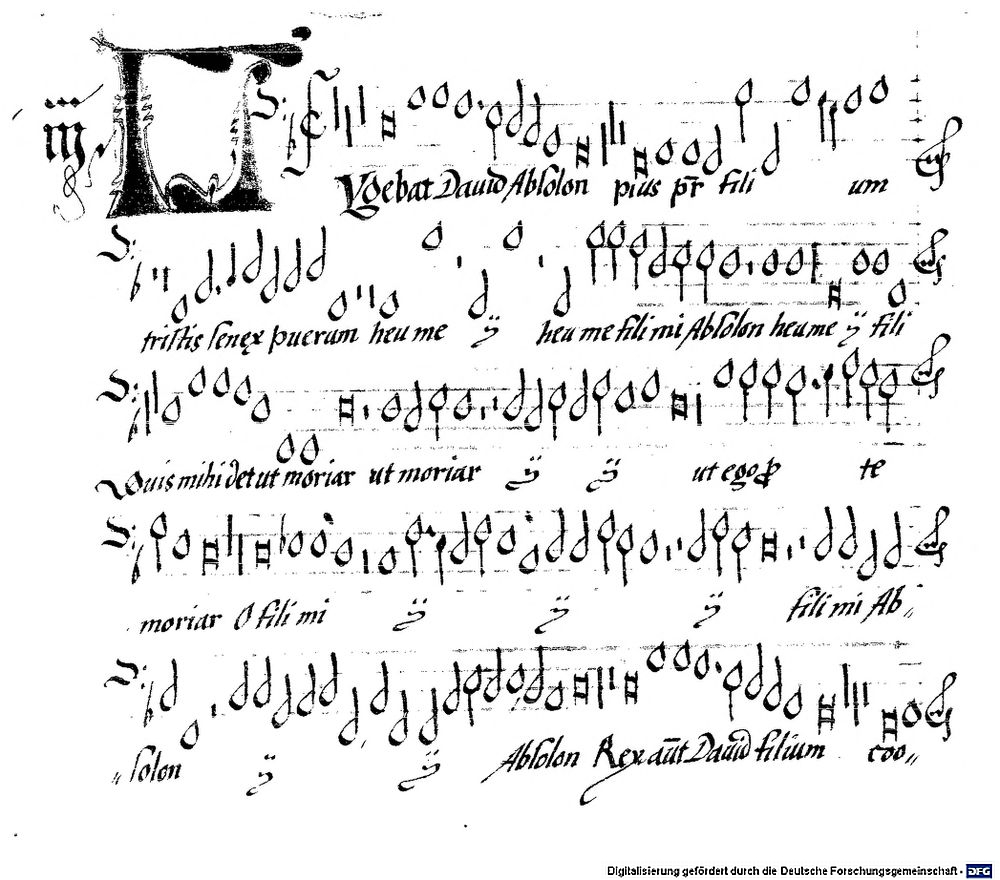 iij. Lvgebat Dauid Absolon pius pr̄ fili um
tristis senex puerum heu me ij heu me fili mi Absolon heu me ij fili
Quis mihi det ut moriar ut moriar ij ij ut ego ꝓ te
moriar O fili mi ij ij ij fili mi Ab„
„solon ij ij Absolon Rex aūt Dauid filium coo„
Digitalisierung gefördert durch die Deutsche Forschungsgemeinschaft - DFG